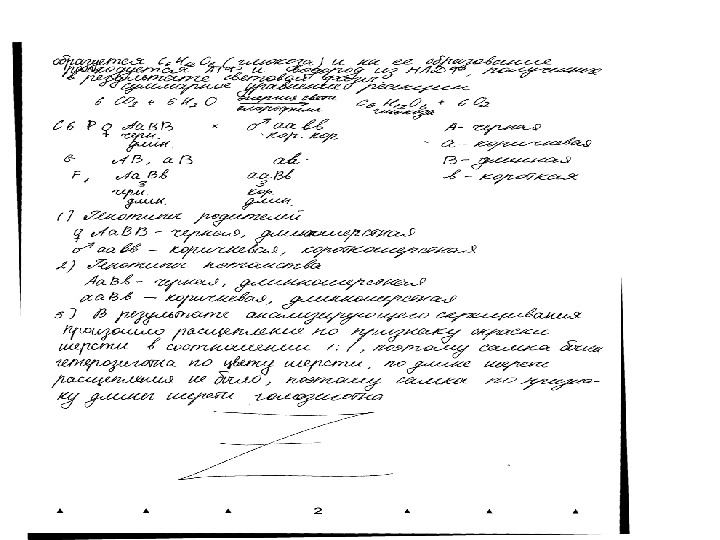 образуется C6H12O6 (глюкоза) и на ее образование
расходуется АТФ и водород из НАДФ, полученных
в результате световой фазы.
Суммарное уравнение реакции
6 CO2 + 6 H2O энергия света хлорофилл C6H12O6 + 6 O2
глюкоза
C6 P ♀ AaBB × ♂ aa bb A - черная
черн. кор. кор. a - коричневая
длин.
G AB, aB ab B - длинная
F1 AaBb aaBb b - короткая
3 3
черн. кор.
длин. длин.
1) Генотипы родителей
♀ AaBB - черная, длинношерстная
♂ aabb - коричневая, короткошерстная
2) Генотипы потомства
AaBb - черная, длинношерстная
aaBb - коричневая, длинношерстная
3) В результате анализирующего скрещивания
произошло расщепление по признаку окраски
шерсти в соотношении 1:1, поэтому самка была
гетерозиготна по цвету шерсти, по длине шерсти
расщепления не было, поэтому самка по призна-
ку длины шерсти гомозиготна
2